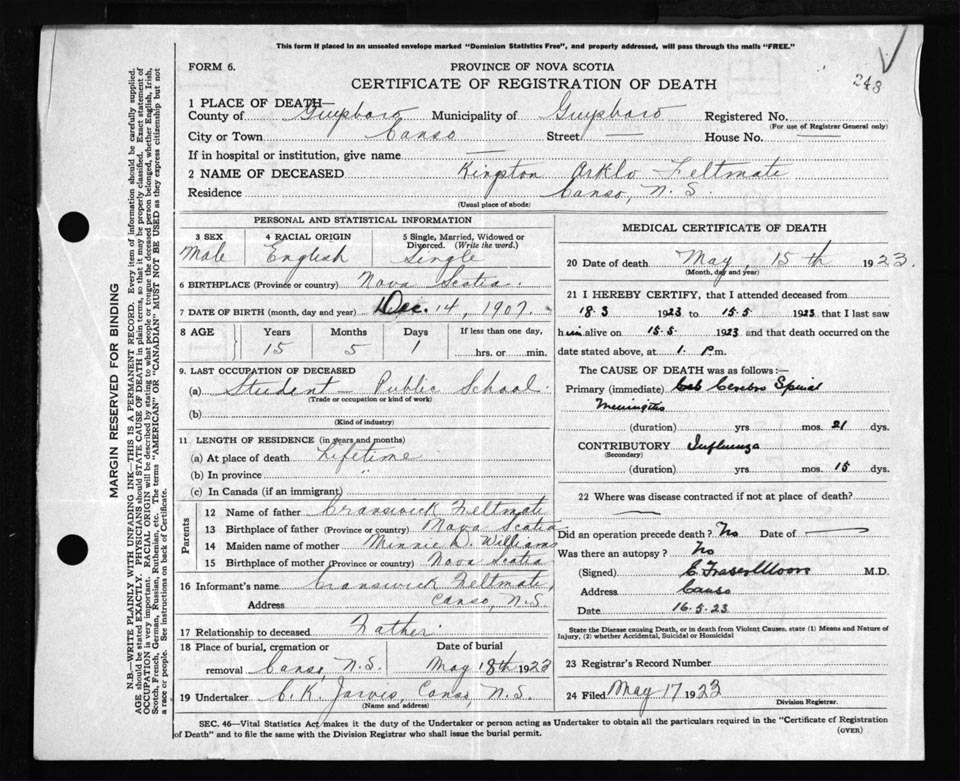 This form if placed in an unsealed envelope marked "Dominion Statistics Free", and properly addressed, will pass through the mails "FREE."
FORM 6. PROVINCE OF NOVA SCOTIA
248
CERTIFICATE OF REGISTRATION OF DEATH
1 PLACE OF DEATH—
County of Guysboro Municipality of Guysboro Registered No.
(For use of Registrar General only)
City or Town Canso Street — House No. —
If in hospital or institution, give name —
2 NAME OF DECEASED Kingston Arklo Feltmate
Residence Canso, N.S.
(Usual place of abode)
PERSONAL AND STATISTICAL INFORMATION
3 SEX 4 RACIAL ORIGIN 5 Single, Married, Widowed or Divorced. (Write the word.)
Male English Single
6 BIRTHPLACE (Province or country) Nova Scotia.
7 DATE OF BIRTH (month, day and year) Dec. 14, 1907.
8 AGE Years Months Days If less than one day,
15 5 1 hrs. or min.
9. LAST OCCUPATION OF DECEASED
(a) Student — Public School.
(Trade or occupation or kind of work)
(b)
(Kind of industry)
11 LENGTH OF RESIDENCE (in years and months)
(a) At place of death Lifetime
(b) In province "
(c) In Canada (if an immigrant)
Parents
12 Name of father Cranswick Feltmate
13 Birthplace of father (Province or country) Nova Scotia
14 Maiden name of mother Minnie D. Williams
15 Birthplace of mother (Province or country) Nova Scotia
16 Informant's name Cranswick Feltmate,
Address Canso, N.S.
17 Relationship to deceased Father.
18 Place of burial, cremation or removal Date of burial
Canso, N.S. May 18th 1923
19 Undertaker C. K. Jarvis, Canso, N.S.
(Name and address)
MEDICAL CERTIFICATE OF DEATH
20 Date of death May, 15th 1923.
(Month, day and year)
21 I HEREBY CERTIFY, that I attended deceased from
18.3 1923 to 15.5 1923 that I last saw
him alive on 15.5 1923 and that death occurred on the
date stated above, at 1. P.m.
The CAUSE OF DEATH was as follows:—
Primary (immediate) Cerebro Spinal
Meningitis
(duration) yrs. mos. 21 dys.
CONTRIBUTORY Influenza
(Secondary)
(duration) yrs. mos. 15 dys.
22 Where was disease contracted if not at place of death?
—
Did an operation precede death? No Date of —
Was there an autopsy? No
(Signed) C. Fraser Moore M.D.
Address Canso
Date 16.5.23
State the Disease causing Death, or in death from Violent Causes, state (1) Means and Nature of Injury, (2) whether Accidental, Suicidal or Homicidal
23 Registrar's Record Number
24 Filed May 17 1923
Division Registrar.
SEC. 46—Vital Statistics Act makes it the duty of the Undertaker or person acting as Undertaker to obtain all the particulars required in the "Certificate of Registration
of Death" and to file the same with the Division Registrar who shall issue the burial permit.
(OVER)
MARGIN RESERVED FOR BINDING
N.B.—WRITE PLAINLY WITH UNFADING INK—THIS IS A PERMANENT RECORD. Every item of information should be carefully supplied.
AGE should be stated EXACTLY. PHYSICIANS should STATE CAUSE OF DEATH in plain terms, so that it may be properly classified. Exact statement of
OCCUPATION is very important. RACIAL ORIGIN will be described by stating to what people or tongue the deceased person belonged, whether English, Irish,
Scotch, French, German, Russian, Ruthenian, etc. The terms "AMERICAN" or "CANADIAN" MUST NOT BE USED as they express citizenship but not
a race or people. See instructions on back of Certificate.